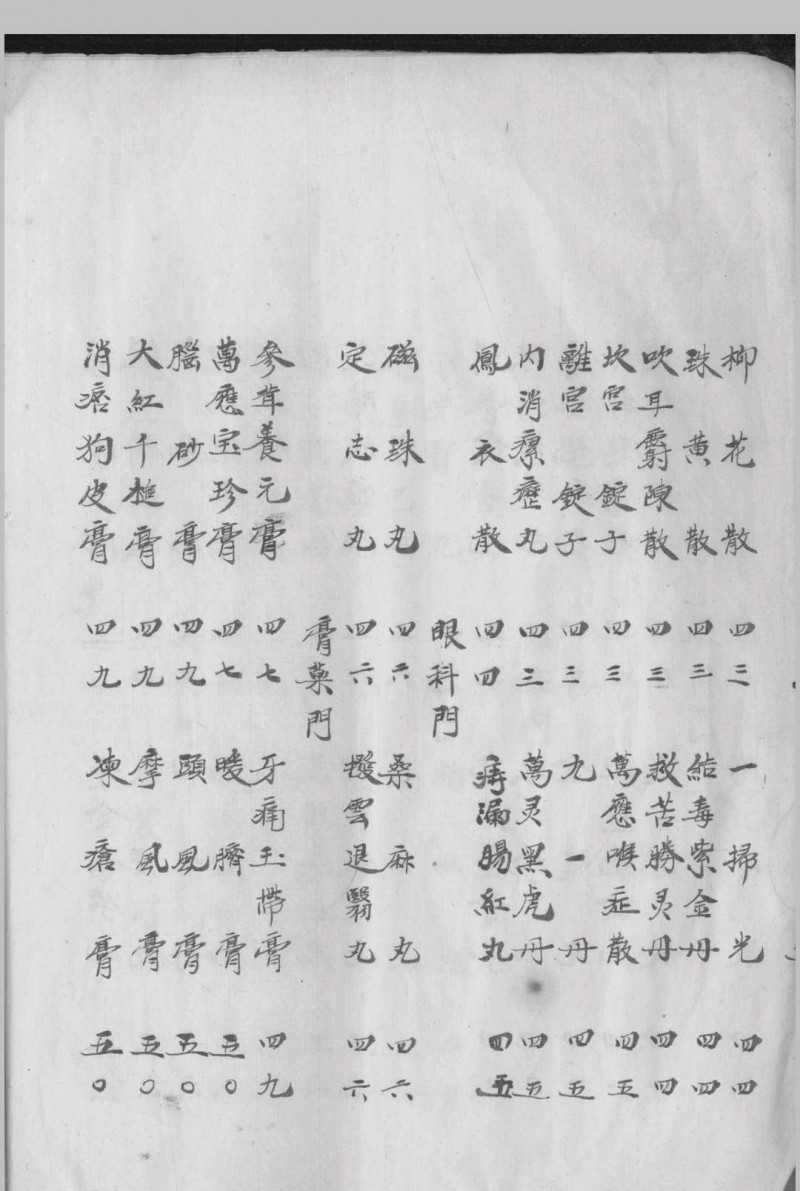 柳花散 四三 一掃光 四四
珠黄散 四三 結毒紫金丹 四四
吹耳麝陳散 四三 救苦勝灵丹 四四
坎宫錠子 四三 萬應喉症散 四五
離宫錠子 四三 九一丹 四五
内消瘰癧丸 四三 萬灵黑虎丹 四五
鳳衣散 四四 痔漏腸紅丸 四五
眼科門
磁珠丸 四六 桑麻丸 四六
定志丸 四六 撥雲退翳丸 四六
膏藥門
參茸養元膏 四七 牙痛玉带膏 四九
萬應宝珍膏 四七 暖臍膏 五〇
腦砂膏 四九 頭風膏 五〇
大紅千槌膏 四九 摩風膏 五〇
消痞狗皮膏 四九 凍瘡膏 五〇